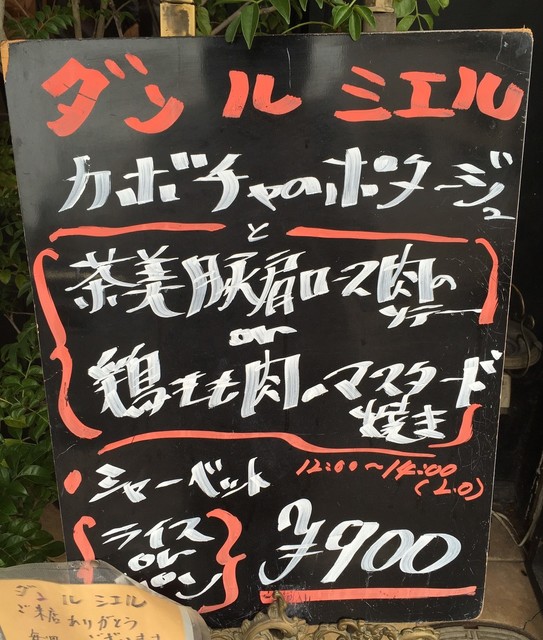 ダン ル ミエル
カボチャのポタージュ
と
茶美豚肩ロース肉の
ソテー
or
鶏もも肉のマスタード
焼き
シャーベット
12:00～14:00
(L.O)
ライス
or
パン
¥900
ダン ル ミエル
ご来店ありがとう
ございます